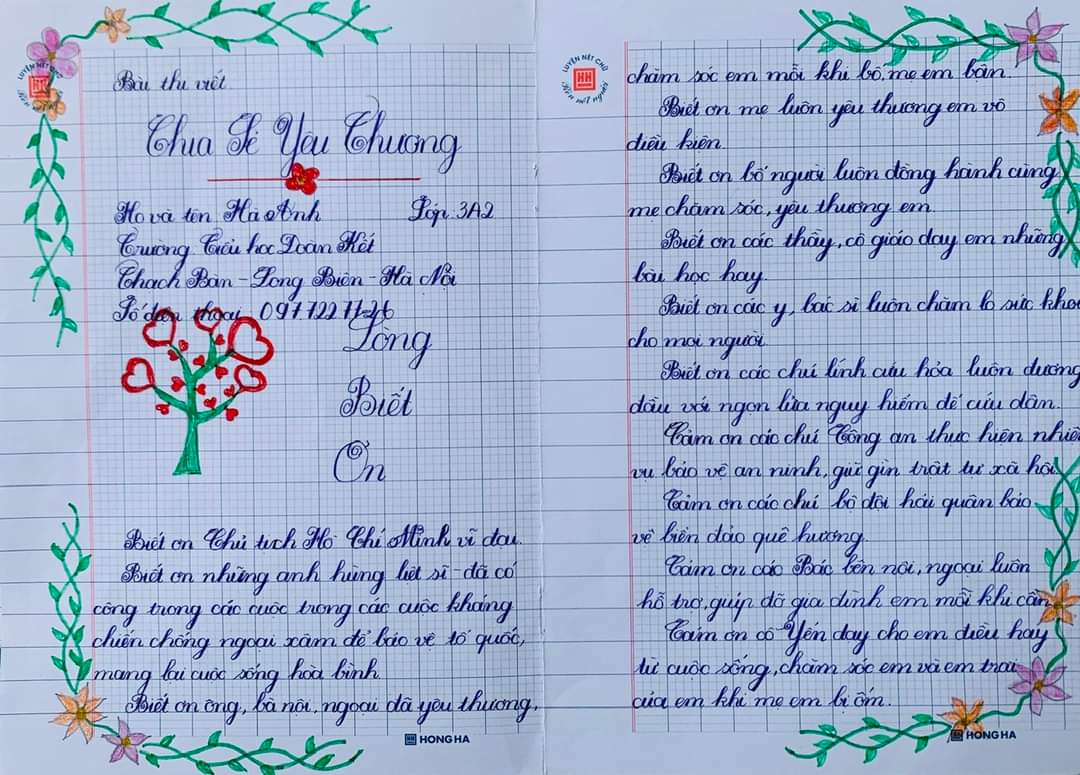 LUYỆN NÉT CHỮ
HH
Rèn nết người
Bài thi viết
Chia Sẻ Yêu Thương
Họ và tên Hà Anh Lớp 3A2
Trường Tiểu học Đoàn Kết
Thạch Bàn - Long Biên - Hà Nội
Số điện thoại
Lòng
Biết
Ơn
Biết ơn Chủ tịch Hồ Chí Minh vĩ đại.
Biết ơn những anh hùng liệt sĩ - đã có
công trong các cuộc trong các cuộc kháng
chiến chống ngoại xâm để bảo vệ tổ quốc,
mang lại cuộc sống hoà bình.
Biết ơn ông, bà nội, ngoại đã yêu thương,
HONG HA
LUYỆN NÉT CHỮ
HH
Rèn nết người
chăm sóc em mỗi khi bố, mẹ em bận.
Biết ơn mẹ luôn yêu thương em vô
điều kiện.
Biết ơn bố người luôn đồng hành cùng
mẹ chăm sóc, yêu thương em.
Biết ơn các thầy, cô giáo dạy em những
bài học hay.
Biết ơn các y, bác sĩ luôn chăm lo sức khoẻ
cho mọi người.
Biết ơn các chú lính cứu hỏa luôn đương
đầu với ngọn lửa nguy hiểm để cứu dân.
Cảm ơn các chú Công an thực hiện nhiệm
vụ bảo vệ an ninh, giữ gìn trật tự xã hội.
Cảm ơn các chú bộ đội hải quân bảo
vệ biển đảo quê hương.
Cảm ơn các Bác bên nội, ngoại luôn
hỗ trợ, giúp đỡ gia đình em mỗi khi cần
Cảm ơn cô Yến dạy cho em điều hay
từ cuộc sống, chăm sóc em và em trai
của em khi mẹ em bị ốm.
HONG HA